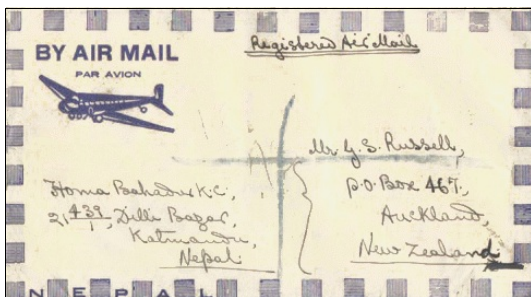 BY AIR MAIL
PAR AVION
Registered Air Mail
Mr. G. S. Russell,
P.O. Box 467,
Auckland,
New Zealand
Homa Bahadur K.C.,
21 439/1, Dilli Bazar,
Katmandu,
Nepal
NEPAL